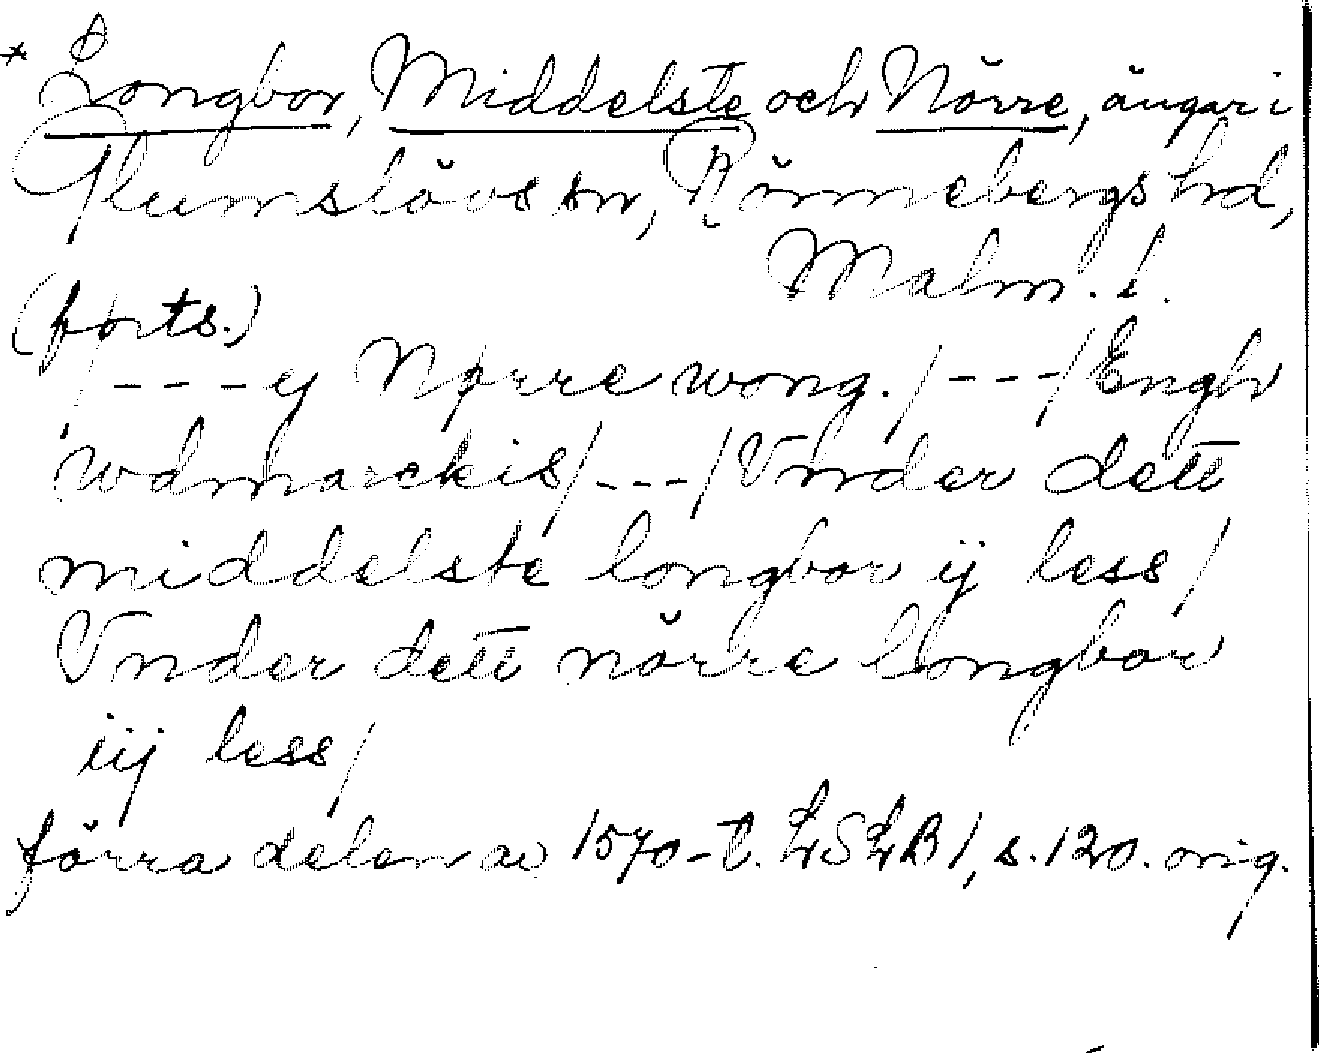 * Longbor, Middelste och Nörre, ängar i
Glumslövs sn, Rönnebergs hrd,
Malm. l.
(forts.)
/ - - - y Nørre wong. / - - - / Engh
wdmarckis / - - - / Vnder dett
middelste longbor ij less /
Vnder dett nörre longbor
iij less /
förra delen av 1570-t. LSLB 1, s. 120. orig.